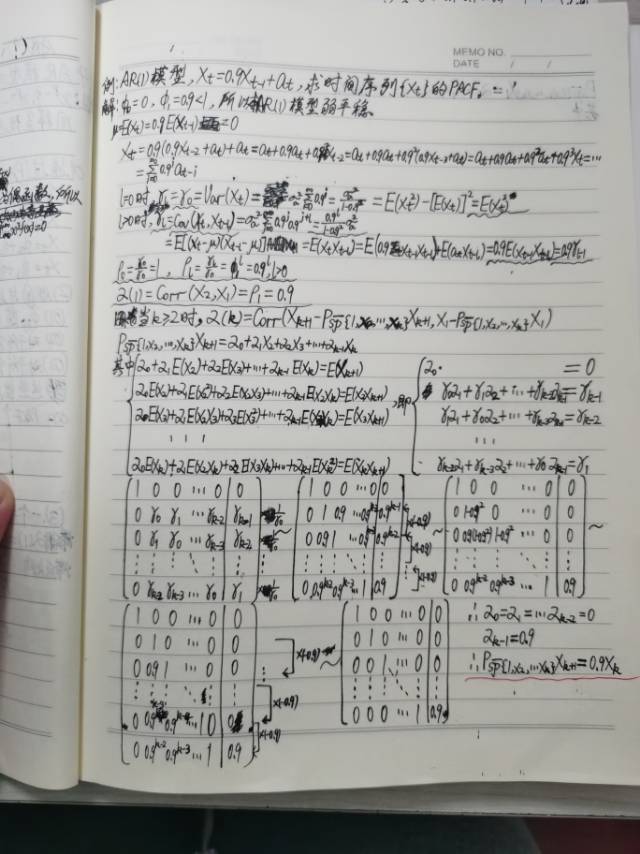 MEMO NO.
DATE / /
例: AR(1)模型, Xt=0.9Xt-1+at, 求时间序列{Xt}的PACF。
解: ϕ0=0, ϕ1=0.9<1, 所以AR(1)模型弱平稳.
μ=E(Xt)=0.9E(Xt-1)=0
Xt=0.9(0.9Xt-2+at)+at=at+0.9at+0.9²Xt-2=at+0.9at+0.9²(0.9Xt-3+at)=at+0.9at+0.9²at+0.9³Xt=…
=Σ0.9^i at-i
l=0时, γl=γ0=Var(Xt)= =E(Xt²)-[E(Xt)]²=E(Xt²)
l>0时, γl=Cov(Xt,Xt-l)=
=E[(Xt-μ)(Xt-l-μ)] =E(XtXt-l)=E(0.9Xt-1Xt-l)+E(atXt-l)=0.9E(Xt-1Xt-l)=0.9γl-1
ρ0=γ0/γ0=1, ρl=γl/γ0=ϕ^l=0.9^l, l>0
α(1)=Corr(X2,X1)=ρ1=0.9
当k≥2时, α(k)=Corr(Xk+1-Psp{1,x2,…,xk}Xk+1, X1-Psp{1,x2,…,xk}X1)
Psp{1,x2,…,xk}Xk+1=α0+α1X2+α2X3+…+αk-1Xk
其中 α0+α1E(X2)+α2E(X3)+…+αk-1E(Xk)=E(Xk+1)
α0E(X2)+α1E(X2²)+α2E(X2X3)+…+αk-1E(X2Xk)=E(X2Xk+1)
α0E(X3)+α1E(X2X3)+α2E(X3²)+…+αk-1E(X3Xk)=E(X3Xk+1)
…
α0E(Xk)+α1E(X2Xk)+α2E(X3Xk)+…+αk-1E(Xk²)=E(XkXk+1)
即 α0 =0
γ0α1+γ1α2+…+γk-2αk-1=γk-1
γ1α1+γ0α2+…+γk-3αk-1=γk-2
…
γk-2α1+γk-3α2+…+γ0αk-1=γ1
1 0 0 … 0 0
0 γ0 γ1 … γk-2 γk-1
0 γ1 γ0 … γk-3 γk-2
0 γk-2 γk-3 … γ0 γ1
~
1 0 0 … 0 0
0 1 0.9 … 0.9^k-2 0.9^k-1
0 0.9 1 … 0.9^k-2
0 0.9^k-2 0.9^k-3 … 1 0.9
×(-0.9)
~
1 0 0 … 0 0
0 1-0.9² 0 … 0 0
0 0.9(1-0.9²) 1-0.9² … 0 0
0 0.9^k-2 0.9^k-3 … 1 0.9
~
1 0 0 … 0 0
0 1 0 … 0 0
0 0.9 1 … 0 0
0 … 1 0
0 0.9^k-2 0.9^k-3 … 1 0.9
×(-0.9)
×(-0.9)
×(-0.9)
~
1 0 0 … 0 0
0 1 0 … 0 0
0 0 1 … 0 0
0 0 0 … 1 0.9
∴ α0=α1=…αk-2=0
αk-1=0.9
∴ Psp{1,x2,…xk}Xk+1=0.9Xk